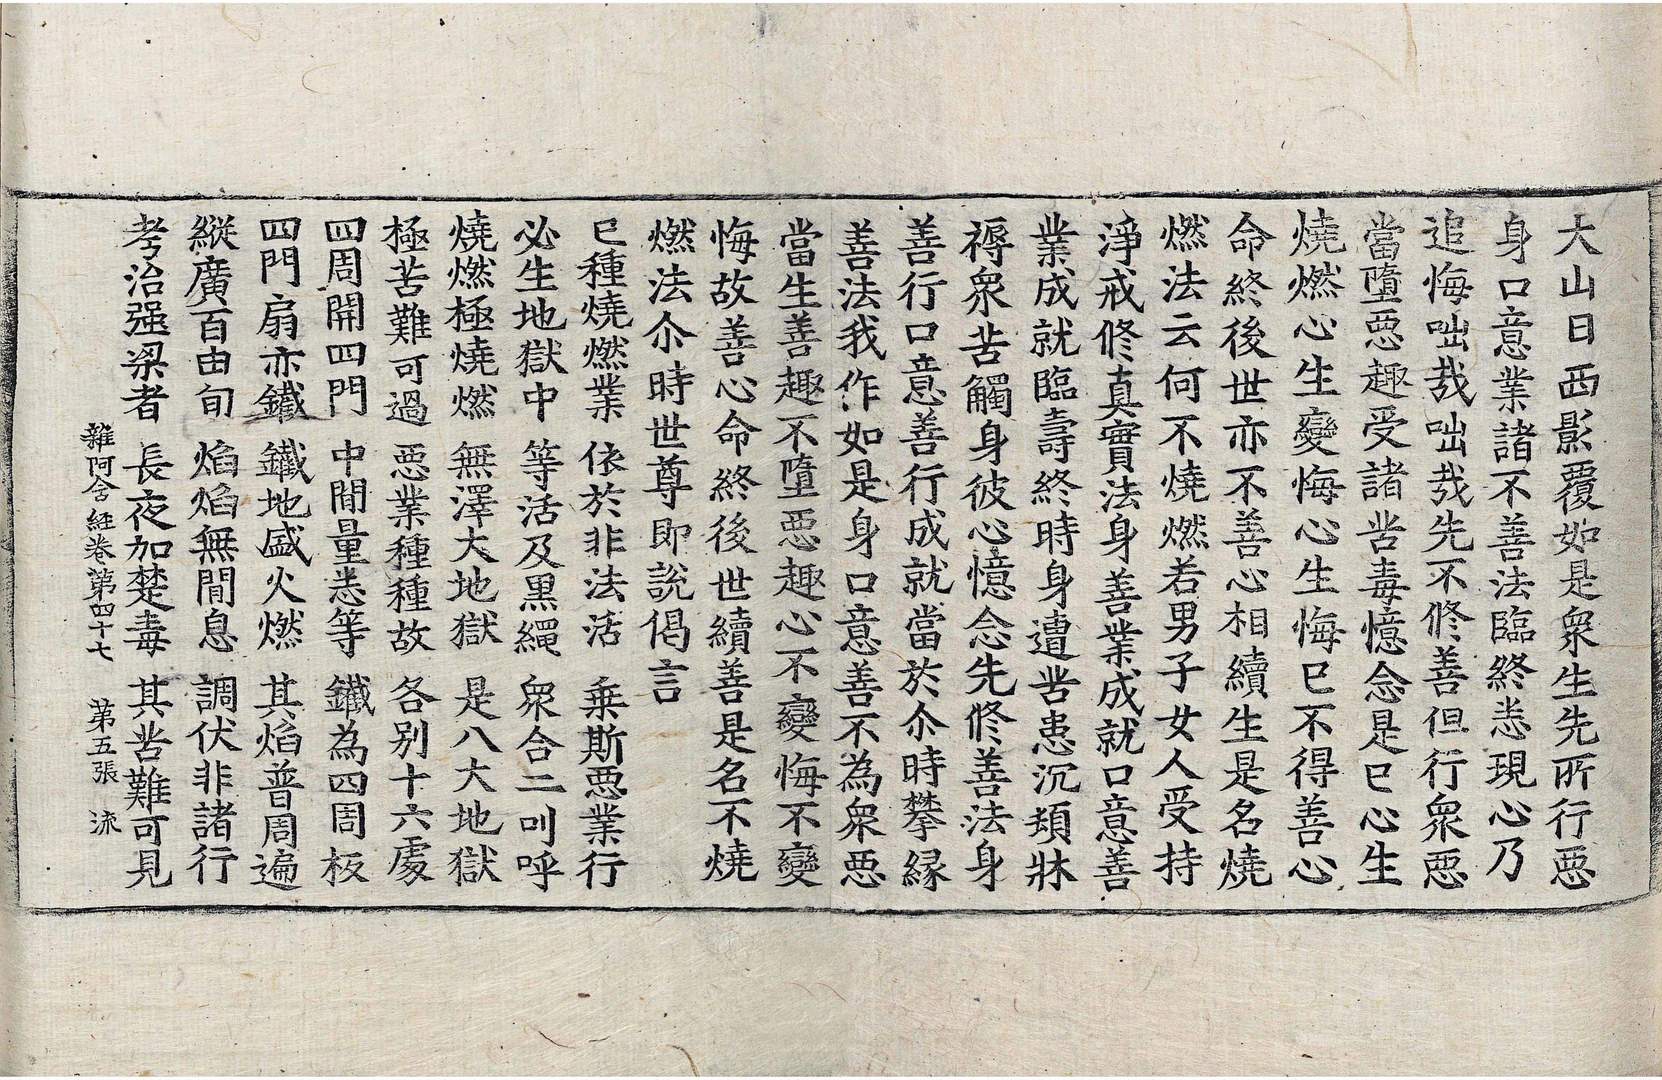 大山日西影覆如是衆生先所行惡
身口意業諸不善法臨終悉現心乃
追悔咄哉咄哉先不修善但行衆惡
當墮惡趣受諸苦毒憶念是已心生
燒燃心生變悔心生悔已不得善心
命終後世亦不善心相續生是名燒
燃法云何不燒燃若男子女人受持
淨戒修真實法身善業成就口意善
業成就臨壽終時身遭苦患沉頓牀
褥衆苦觸身彼心憶念先修善法身
善行口意善行成就當於尒時攀緣
善法我作如是身口意善不為衆惡
當生善趣不墮惡趣心不變悔不變
悔故善心命終後世續善是名不燒
燃法尒時世尊即說偈言
已種燒燃業　依於非法活　乗斯惡業行
必生地獄中　等活及黒繩　衆合二叫呼
燒燃極燒燃　無澤大地獄　是八大地獄
極苦難可過　惡業種種故　各别十六處
四周開四門　中間量悉等　鐵為四周板
四門扇亦鐵　鐵地盛火燃　其焰普周遍
縱廣百由旬　焰焰無間息　調伏非諸行
考治强梁者　長夜加楚毒　其苦難可見
雜阿含経卷第四十七　第五張　流